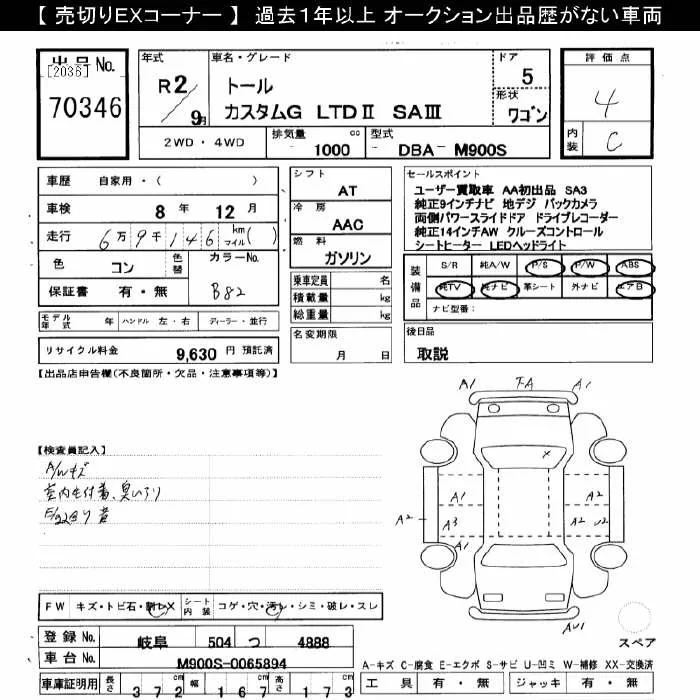 【 売切りEXコーナー 】 過去1年以上 オークション出品歴がない車両
出品 No.
[2036]
70346
年式
R2/9月
車名・グレード
トール
カスタムG LTDⅡ SAⅢ
ドア
5
形状
ワゴン
評価点
4
内装
C
2WD ・ 4WD
排気量 cc
1000
型式
DBA- M900S
車歴 自家用・( )
車検 8 年 12 月
走行 6万9千146 km マイル( )
色 コン 色替 カラーNo.
保証書 有・無 B82
モデル年式 年 ハンドル 左・右 ディーラー・並行
リサイクル料金 9,630 円 預託済
シフト
AT
冷房
AAC
燃料
ガソリン
乗車定員 名
積載量 kg
総重量 kg
名変期限
月 日
セールスポイント
ユーザー買取車 AA初出品 SA3
純正9インチナビ 地デジ バックカメラ
両側パワースライドドア ドライブレコーダー
純正14インチAW クルーズコントロール
シートヒーター LEDヘッドライト
装備品
S/R 純A/W P/S P/W ABS
純TV 純ナビ 革シート 外ナビ エアB
ナビ型番：
後日品
取説
【出品店申告欄(不良箇所・欠品・注意事項等)】
【検査員記入】
A/Wキズ
室内毛付着、臭い
A1 T-A A1
A1 A2
A2 A3 A2
A1
スペア
FW キズ・トビ石・ X
シート内装 コゲ・穴・汚レ・シミ・破レ・スレ
登録 No. 岐阜 504 つ 4888
車台 No. M900S-0065894
車庫証明用 長さ 372 cm 幅 167 cm 高さ 173 cm
A-キズ C-腐食 E-エクボ S-サビ U-凹ミ W-補修 XX-交換済
工具 有・無 ジャッキ 有・無